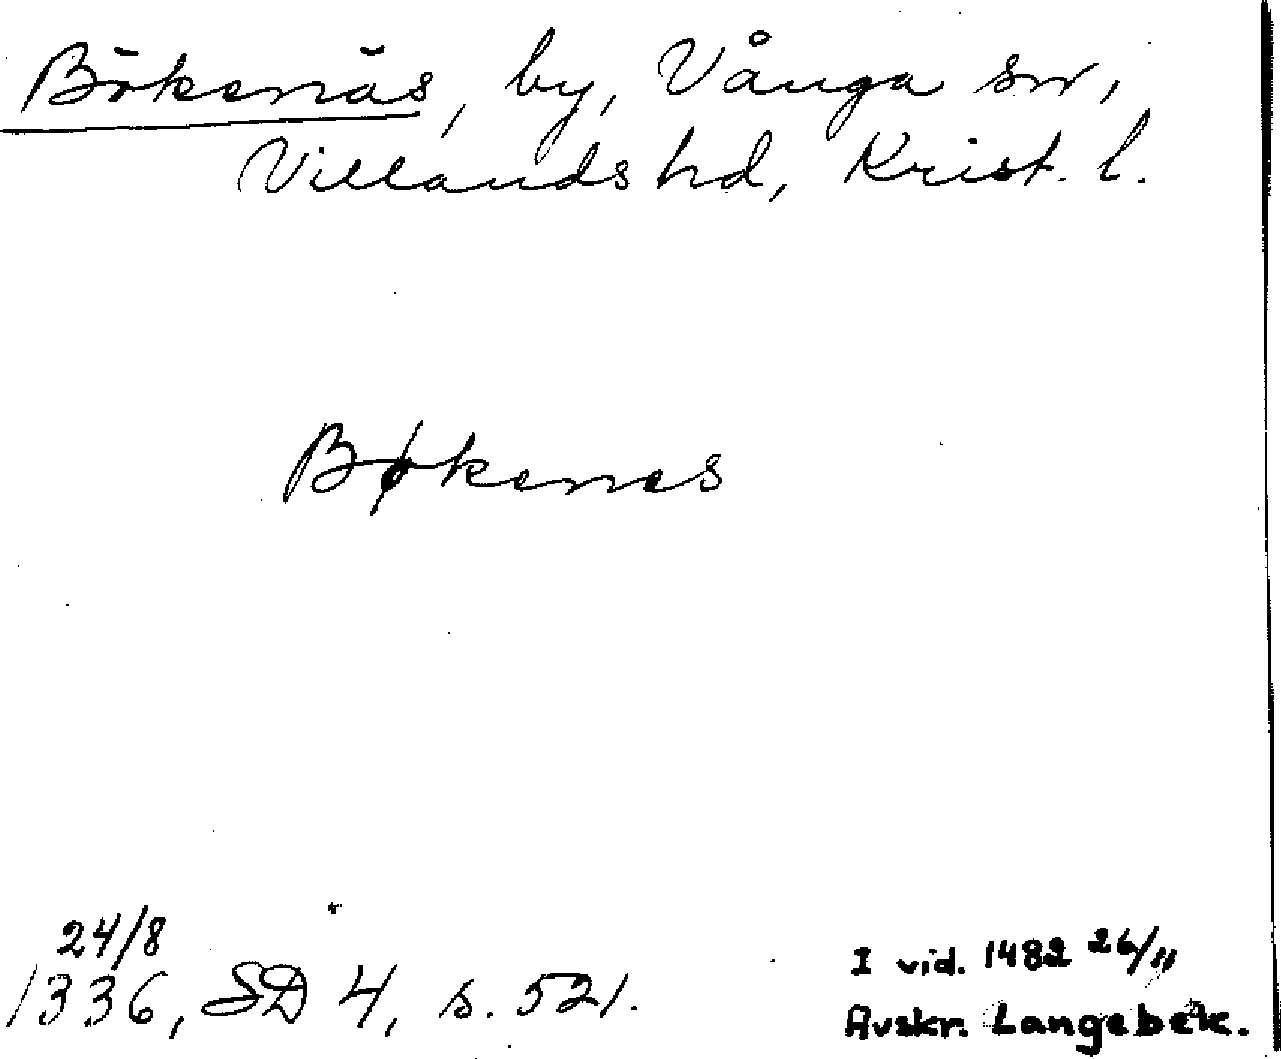 Bökenäs, by, Vånga sn,
Villands hd, Krist. l.
Bøkenes
24/8
1336, SD 4, s. 521.
I vid. 1482 26/11
Avskr. Langebek.